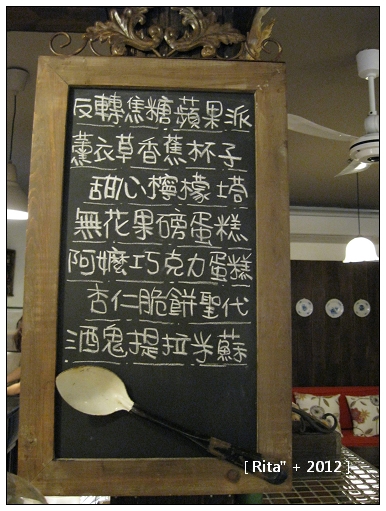 反轉焦糖蘋果派
薰衣草香蕉杯子
甜心檸檬塔
無花果磅蛋糕
阿嬤巧克力蛋糕
杏仁脆餅聖代
酒鬼提拉米蘇
[ Rita" + 2012 ]